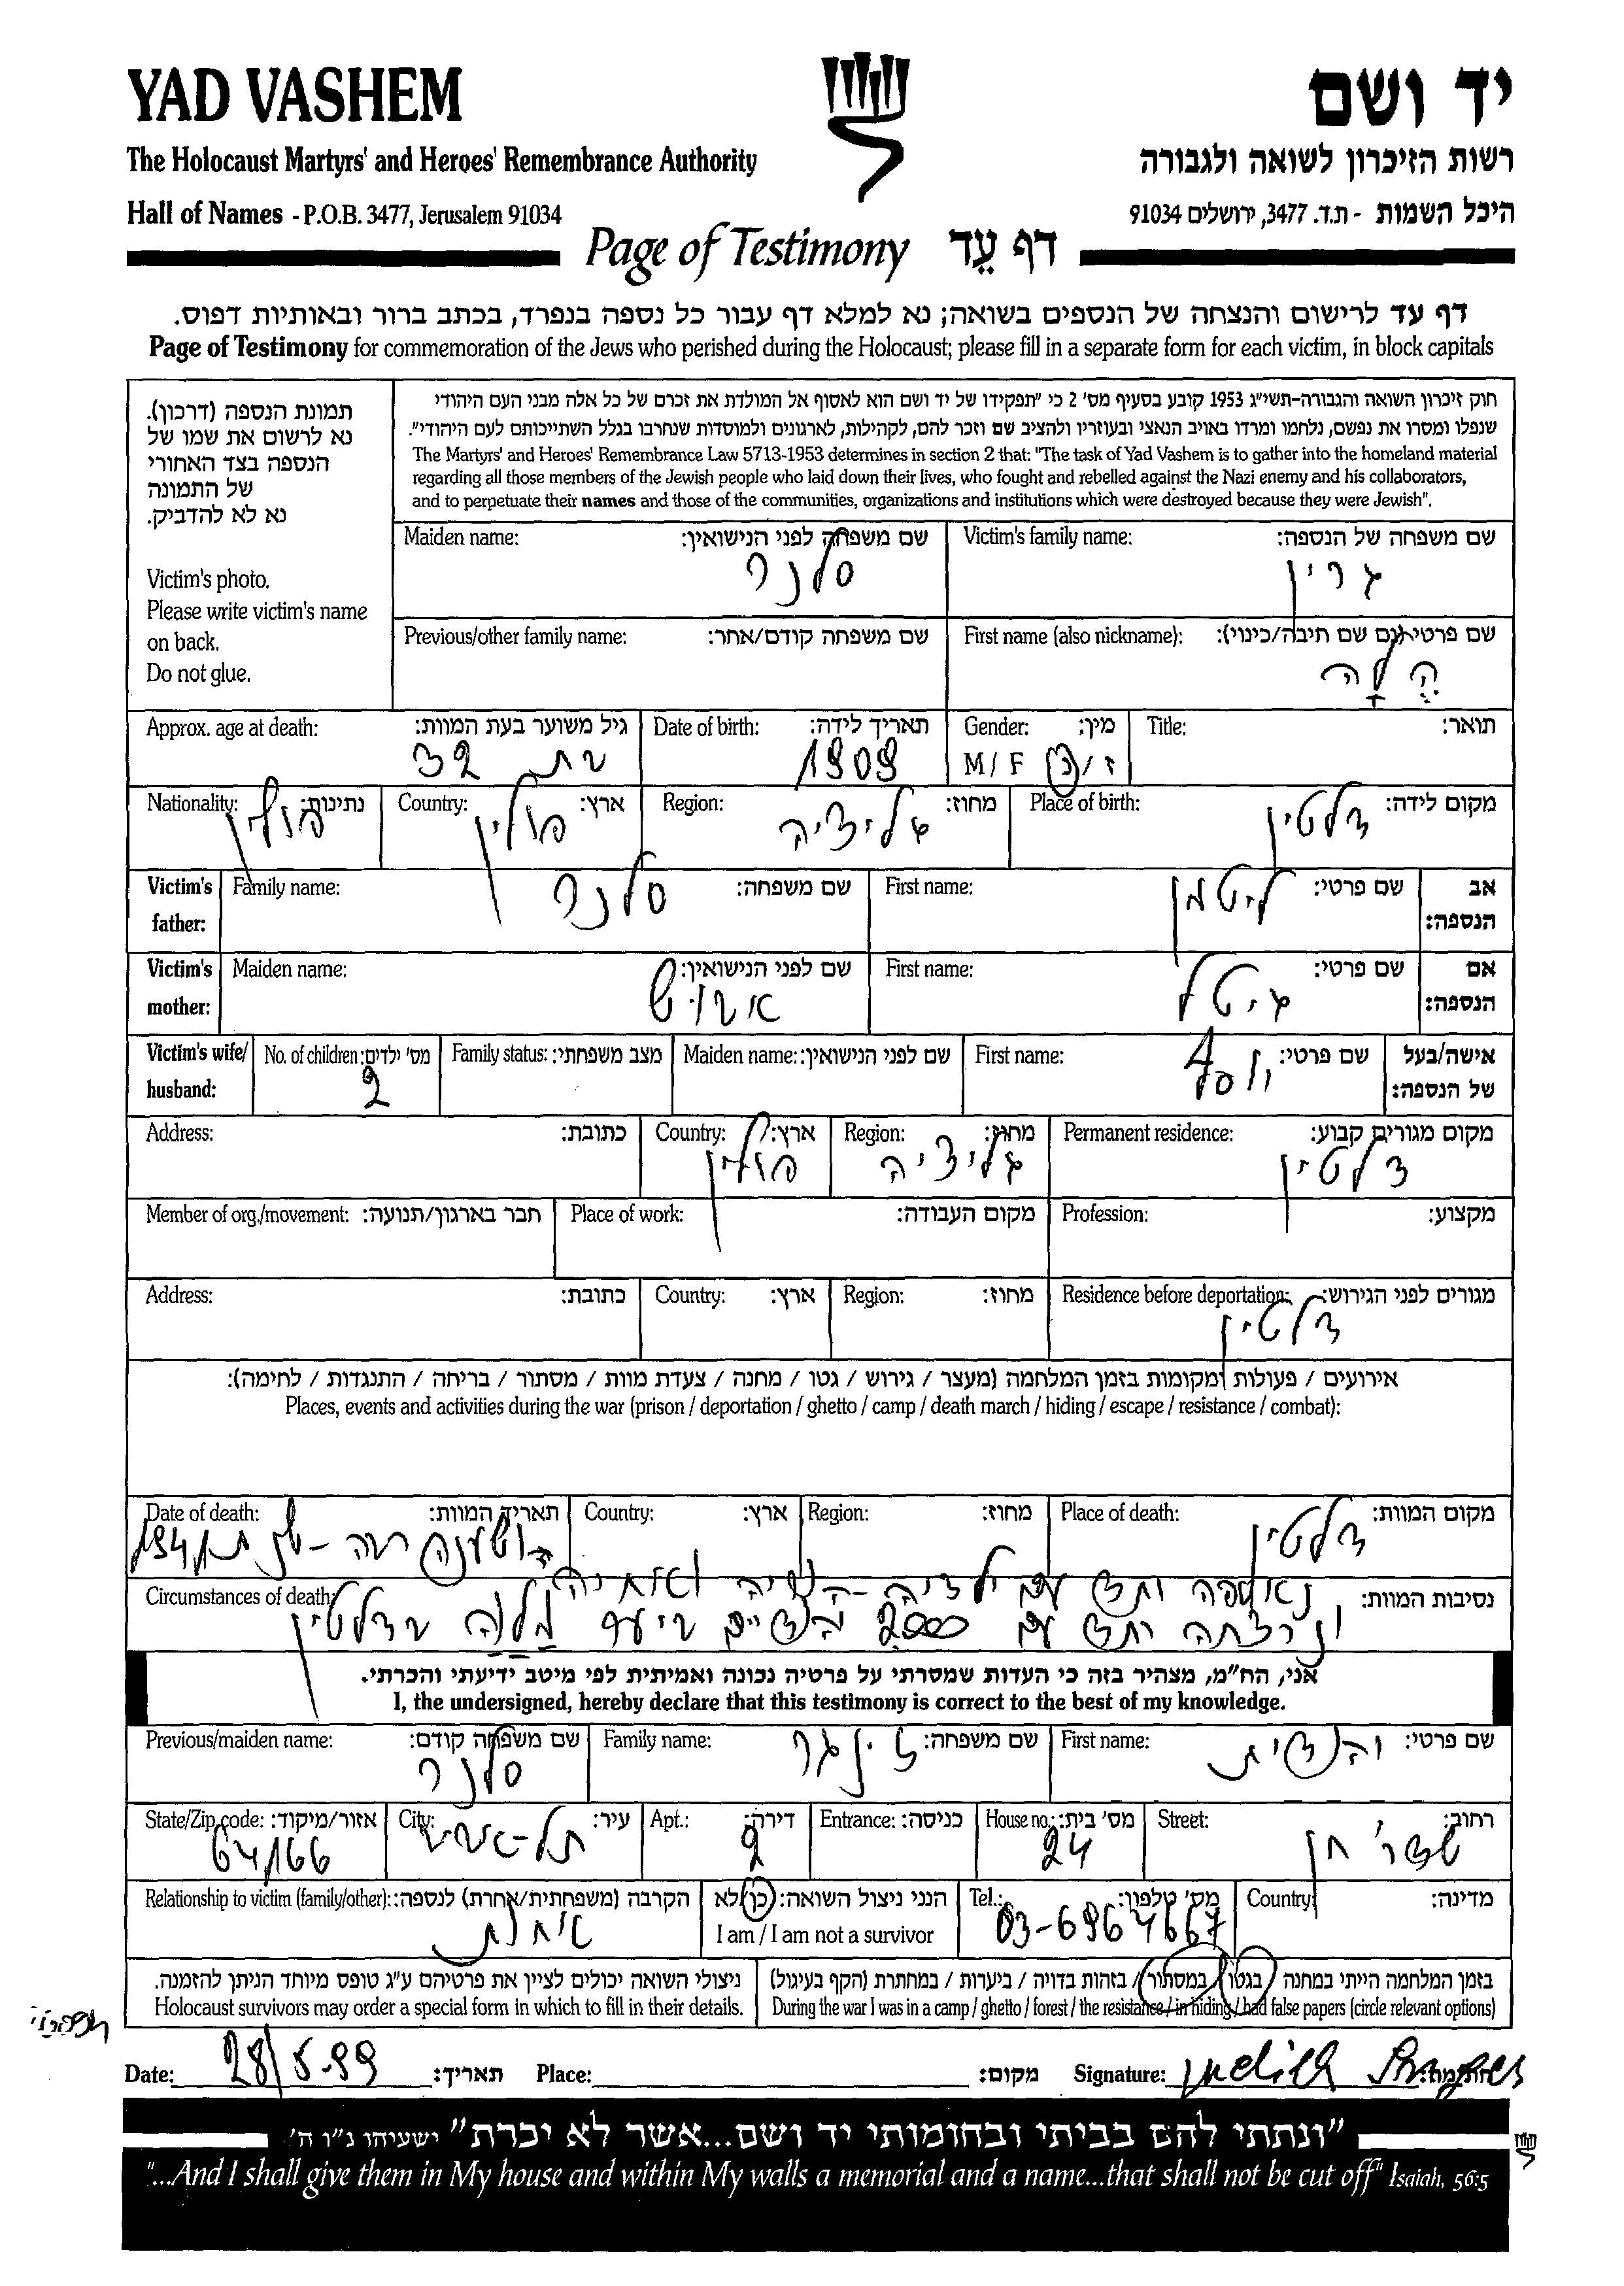 YAD VASHEM
יד ושם
The Holocaust Martyrs' and Heroes' Remembrance Authority
רשות הזיכרון לשואה ולגבורה
Hall of Names - P.O.B. 3477, Jerusalem 91034
היכל השמות - ת.ד. 3477, ירושלים 91034
Page of Testimony דף עֵד
דף עד לרישום והנצחה של הנספים בשואה; נא למלא דף עבור כל נספה בנפרד, בכתב ברור ובאותיות דפוס.
Page of Testimony for commemoration of the Jews who perished during the Holocaust; please fill in a separate form for each victim, in block capitals
תמונת הנספה (דרכון).
נא לרשום את שמו של
הנספה בצד האחורי
של התמונה
נא לא להדביק.
Victim's photo.
Please write victim's name
on back.
Do not glue.
חוק זיכרון השואה והגבורה-תשי"ג 1953 קובע בסעיף מס' 2 כי "תפקידו של יד ושם הוא לאסוף אל המולדת את זכרם של כל אלה מבני העם היהודי
שנפלו ומסרו את נפשם, נלחמו ומרדו באויב הנאצי ובעוזריו ולהציב שם וזכר להם, לקהילות, לארגונים ולמוסדות שנחרבו בגלל השתייכותם לעם היהודי".
The Martyrs' and Heroes' Remembrance Law 5713-1953 determines in section 2 that: "The task of Yad Vashem is to gather into the homeland material
regarding all those members of the Jewish people who laid down their lives, who fought and rebelled against the Nazi enemy and his collaborators,
and to perpetuate their names and those of the communities, organizations and institutions which were destroyed because they were Jewish".
Maiden name: שם משפחה לפני הנישואין: Victim's family name: שם משפחה של הנספה:
סלנר גרין
Previous/other family name: שם משפחה קודם/אחר: First name (also nickname): שם פרטי (גם שם חיבה/כינוי):
הֶלָה
Approx. age at death: גיל משוער בעת המוות: Date of birth: תאריך לידה: Gender: מין: Title: תואר:
בת 32 1909 M / F ז / נ
Nationality: נתינות: Country: ארץ: Region: מחוז: Place of birth: מקום לידה:
פולין פולין גליציה דלטין
Victim's father: Family name: שם משפחה: First name: שם פרטי: אב הנספה:
סלנר ליטמן
Victim's mother: Maiden name: שם לפני הנישואין: First name: שם פרטי: אם הנספה:
גיטל
Victim's wife/ husband: No. of children: מס' ילדים: Family status: מצב משפחתי: Maiden name: שם לפני הנישואין: First name: שם פרטי: אישה/בעל של הנספה:
2 יוסף
Address: כתובת: Country: ארץ: Region: מחוז: Permanent residence: מקום מגורים קבוע:
פולין גליציה דלטין
Member of org./movement: חבר בארגון/תנועה: Place of work: מקום העבודה: Profession: מקצוע:
Address: כתובת: Country: ארץ: Region: מחוז: Residence before deportation: מגורים לפני הגירוש:
דלטין
אירועים / פעולות ומקומות בזמן המלחמה (מעצר / גירוש / גטו / מחנה / צעדת מוות / מסתור / בריחה / התנגדות / לחימה):
Places, events and activities during the war (prison / deportation / ghetto / camp / death march / hiding / escape / resistance / combat):
Date of death: תאריך המוות: Country: ארץ: Region: מחוז: Place of death: מקום המוות:
הושענה רבה - 1941 דלטין
Circumstances of death: נסיבות המוות:
נאספה יחד עם ילדיה ואחיה
ונרצחה יחד עם 2000 ביער בדלטין
אני, הח"מ, מצהיר בזה כי העדות שמסרתי על פרטיה נכונה ואמיתית לפי מיטב ידיעתי והכרתי.
I, the undersigned, hereby declare that this testimony is correct to the best of my knowledge.
Previous/maiden name: שם משפחה קודם: Family name: שם משפחה: First name: שם פרטי:
סלנר זינגר יהודית
State/Zip code: אזור/מיקוד: City: עיר: Apt.: דירה: Entrance: כניסה: House no.: מס' בית: Street: רחוב:
64166 תל-אביב 2 24 שדר' חן
Relationship to victim (family/other): הקרבה (משפחתית/אחרת) לנספה: הנני ניצול השואה: כן/לא Tel.: מס' טלפון: Country: מדינה:
אחות I am / I am not a survivor 03-6964667
ניצולי השואה יכולים לציין את פרטיהם ע"ג טופס מיוחד הניתן להזמנה. בזמן המלחמה הייתי במחנה / בגטו / במסתור / בזהות בדויה / ביערות / במחתרת (הקף בעיגול)
Holocaust survivors may order a special form in which to fill in their details. During the war I was in a camp / ghetto / forest / the resistance / in hiding / had false papers (circle relevant options)
Date: 28/5-99 תאריך: Place: מקום: Signature: Judith חתימה:
"ונתתי להם בביתי ובחומותי יד ושם...אשר לא יכרת" ישעיהו נ"ו ה'.
"...And I shall give them in My house and within My walls a memorial and a name...that shall not be cut off" Isaiah, 56:5